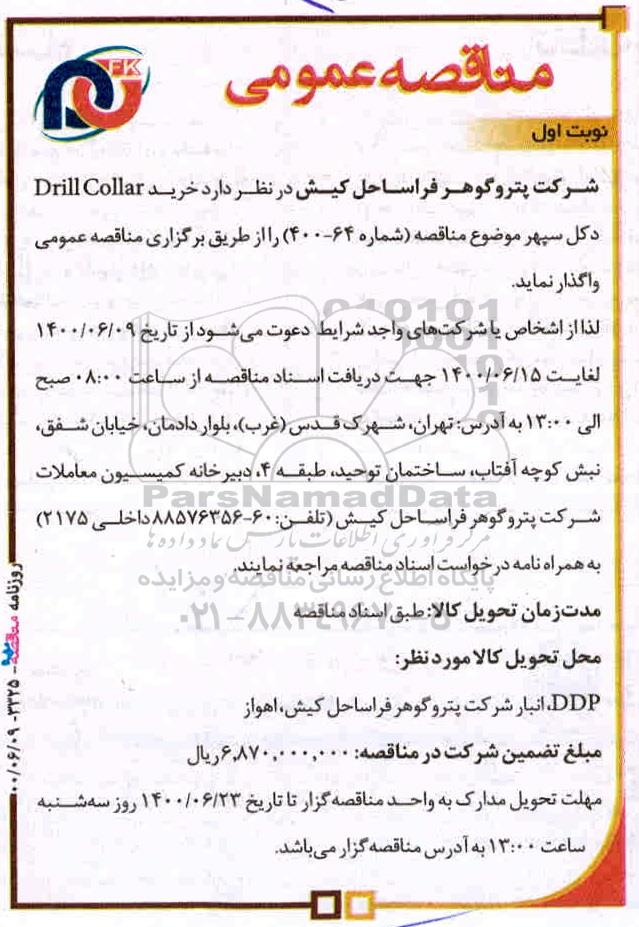 FK
مناقصه عمومی
نوبت اول
شرکت پتروگوهر فراساحل کیش در نظر دارد خرید Drill Collar
دکل سپهر موضوع مناقصه (شماره ۶۴-۴۰۰) را از طریق برگزاری مناقصه عمومی
واگذار نماید.
لذا از اشخاص یا شرکت‌های واجد شرایط دعوت می‌شود از تاریخ ۱۴۰۰/۰۶/۰۹
لغایت ۱۴۰۰/۰۶/۱۵ جهت دریافت اسناد مناقصه از ساعت ۰۸:۰۰ صبح
الی ۱۳:۰۰ به آدرس: تهران، شهرک قدس (غرب)، بلوار دادمان، خیابان شفق،
نبش کوچه آفتاب، ساختمان توحید، طبقه ۴، دبیرخانه کمیسیون معاملات
ParsNamadData
شرکت پتروگوهر فراساحل کیش (تلفن: ۶۰-۸۸۵۷۶۳۵۶ داخلی ۲۱۷۵)
مرکز فرآوری اطلاعات پارس نماد داده ها
به همراه نامه درخواست اسناد مناقصه مراجعه نمایند.
پایگاه اطلاع رسانی مناقصه و مزایده
مدت زمان تحویل کالا: طبق اسناد مناقصه
۰۲۱-۸۸۳۴۹۶۷۰-۵
محل تحویل کالا مورد نظر:
DDP، انبار شرکت پتروگوهر فراساحل کیش، اهواز
مبلغ تضمین شرکت در مناقصه: ۶,۸۷۰,۰۰۰,۰۰۰ ریال
مهلت تحویل مدارک به واحد مناقصه‌گزار تا تاریخ ۱۴۰۰/۰۶/۲۳ روز سه‌شنبه
ساعت ۱۳:۰۰ به آدرس مناقصه‌گزار می‌باشد.
روزنامه مناقصه - ۳۳۲۵ - ۰۰/۰۶/۰۹